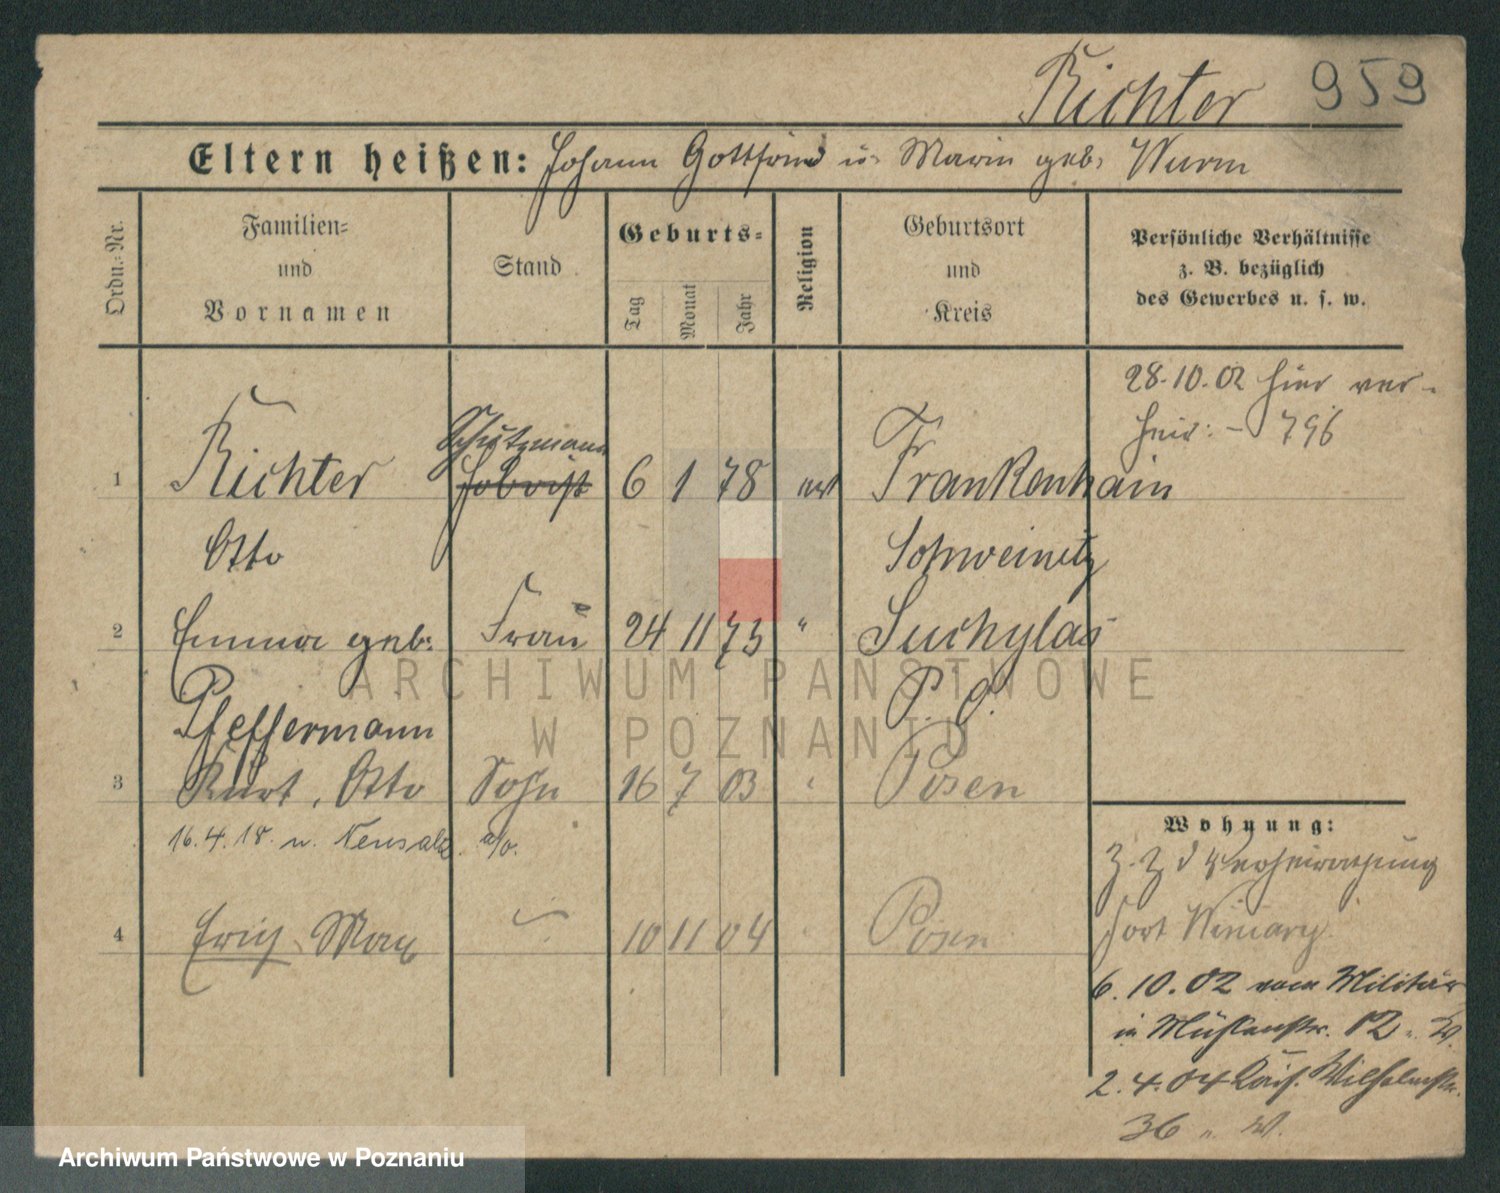 Richter 959
Eltern heißen: Johann Gottfried u. Marie geb. Wurm
Ordn.-Nr. Familien- und Vornamen Stand Geburts- Tag Monat Jahr Religion Geburtsort und Kreis Persönliche Verhältnisse z. B. bezüglich des Gewerbes u. s. w.
28.10.02 hier ver-
heir. - 796
Schutzmann
1 Richter 6 1 78 ev Frankenhain
Otto Schweinitz
2 Emma geb. Frau 24 11 73 " Suchylas
Pfeffermann P. O.
3 Kurt, Otto Sohn 16 7 03 " Posen
16.4.18. n. Neusalz a/o.
4 Erich Max 10 11 04 Posen
Wohnung:
z. Z d Verheiratung
Fort
6.10.02 vom Militär
in Mühlenstr. 12 " W.
2.4.04 Kais. Wilhelmstr.
36 " W.
ARCHIWUM PAŃSTWOWE
W POZNANIU
Archiwum Państwowe w Poznaniu